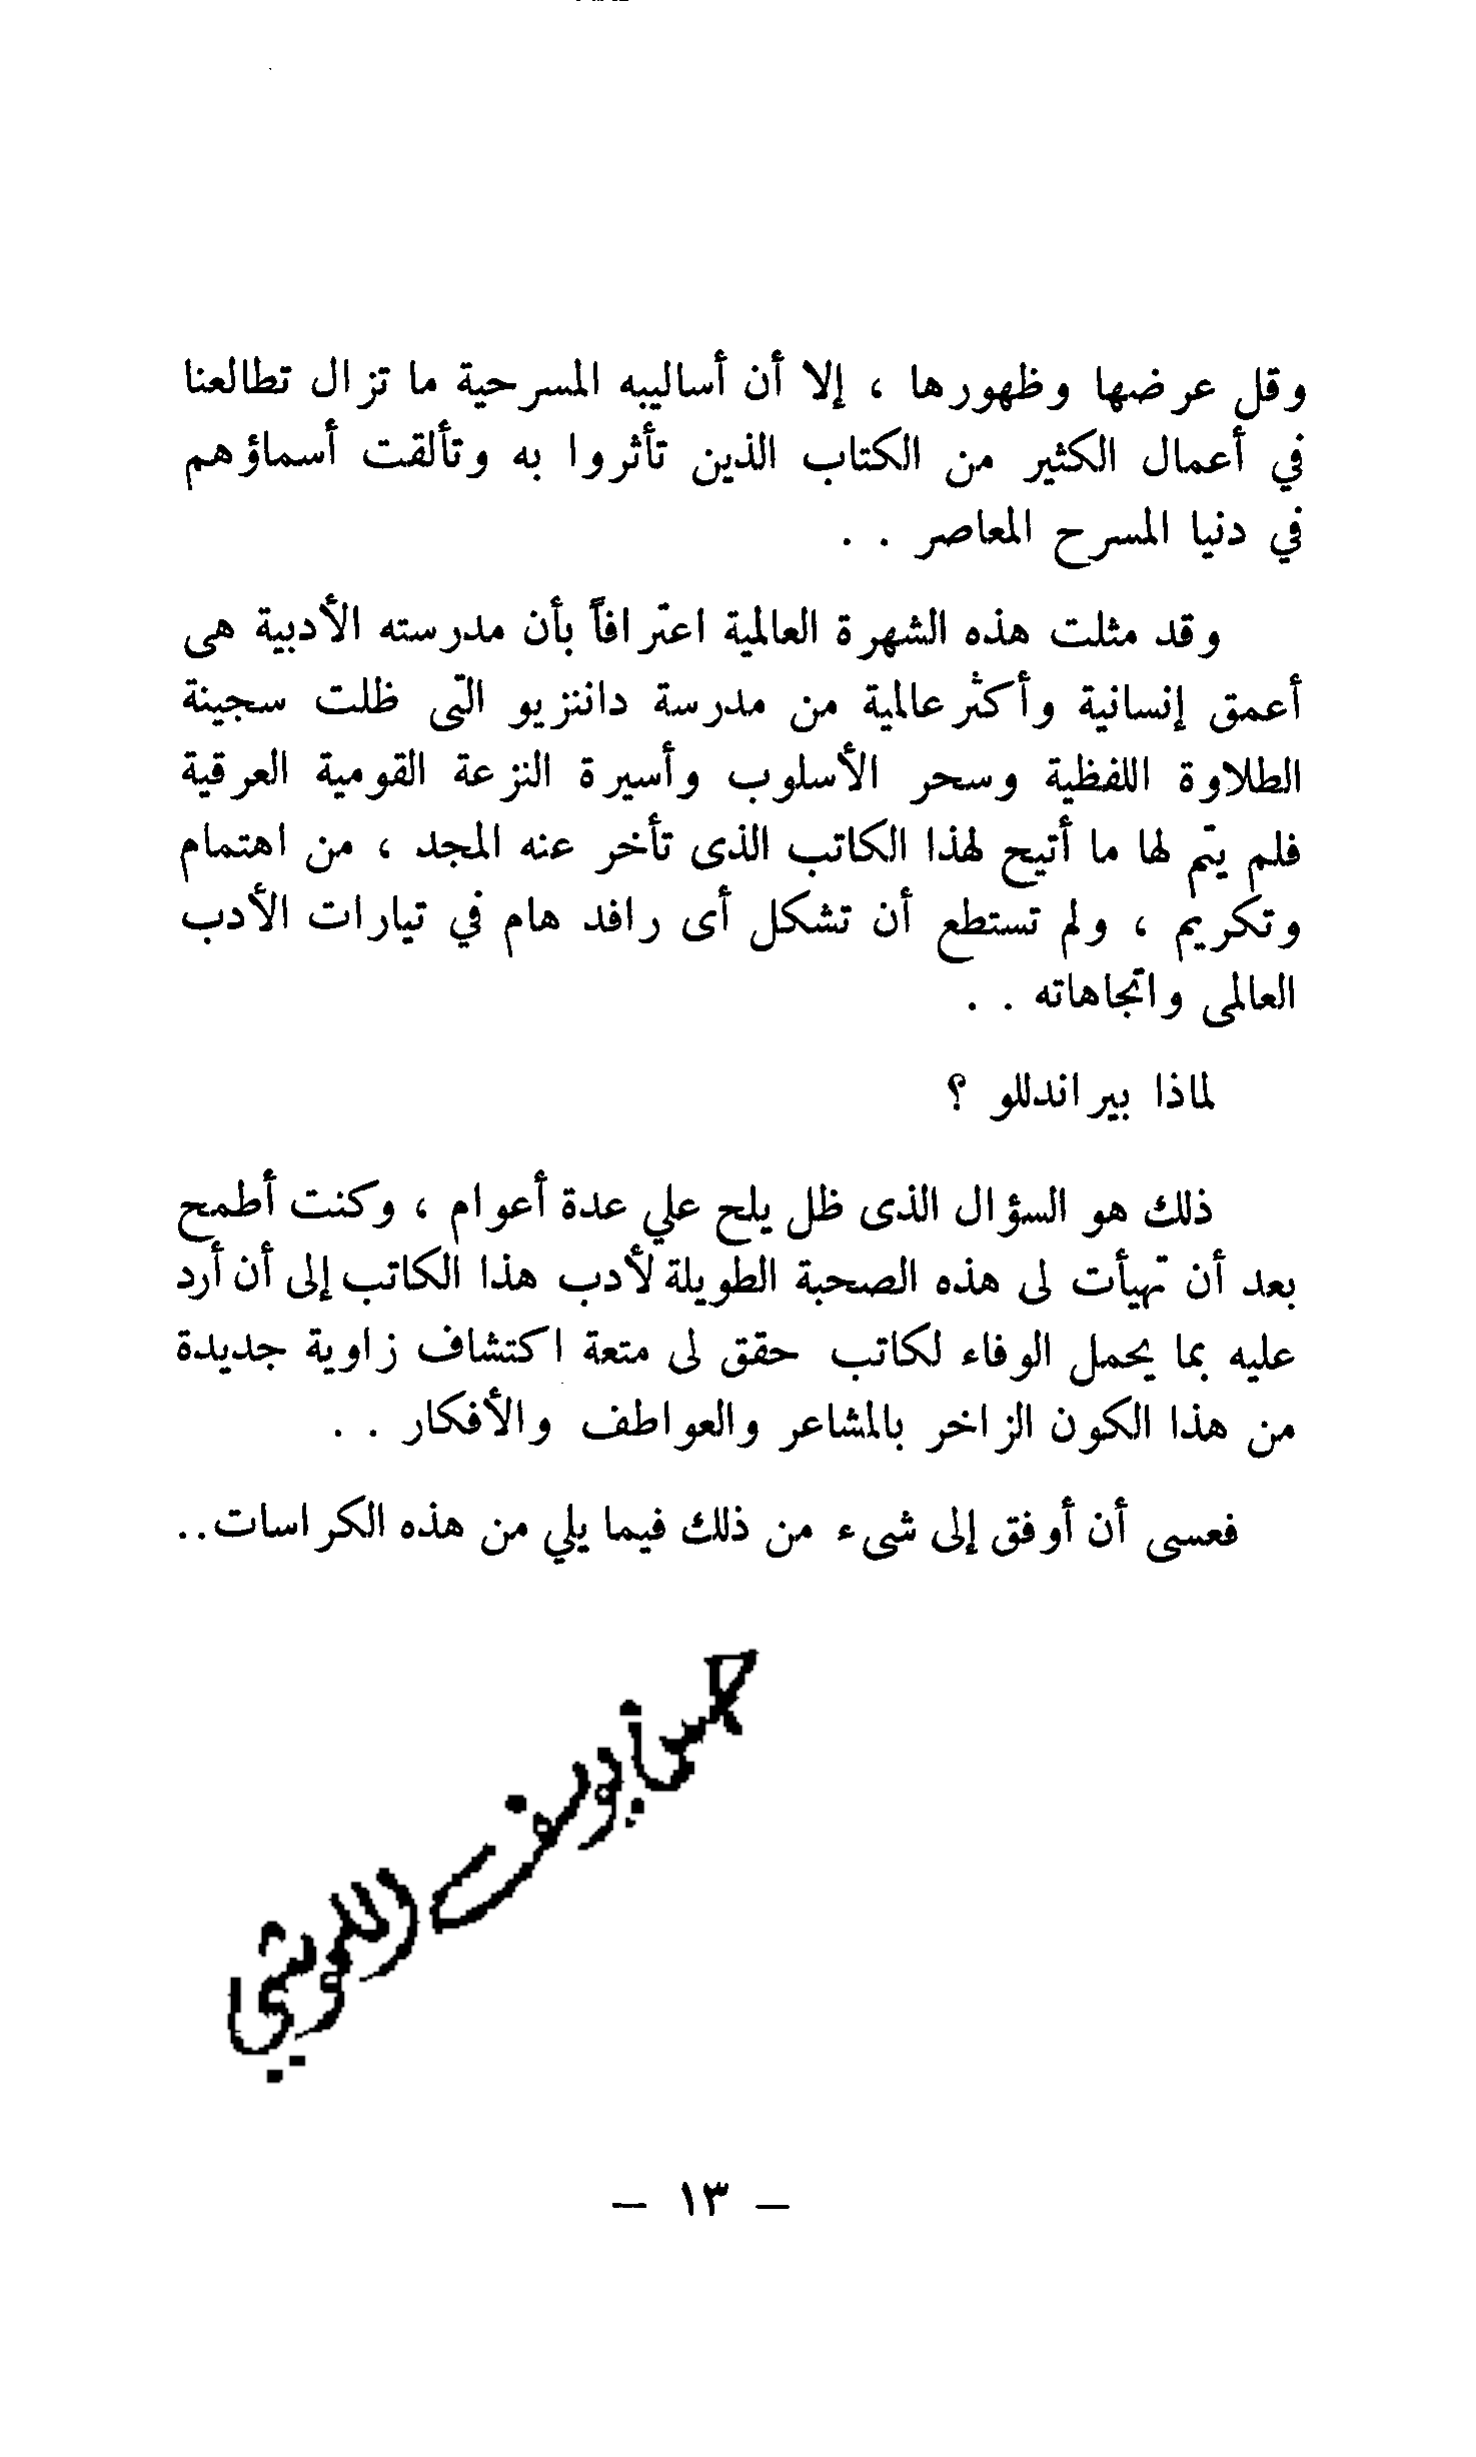 وقل عرضها وظهورها ، إلا أن أساليبه المسرحية ما تزال تطالعنا
في أعمال الكثير من الكتاب الذين تأثروا به وتألقت أسماؤهم
في دنيا المسرح المعاصر . .
وقد مثلت هذه الشهرة العالمية اعترافاً بأن مدرسته الأدبية هى
أعمق إنسانية وأكثر عالمية من مدرسة داننزيو التى ظلت سجينة
الطلاوة اللفظية وسحر الأسلوب وأسيرة النزعة القومية العرقية
فلم يتم لها ما أتيح لهذا الكاتب الذى تأخر عنه المجد ، من اهتمام
وتكريم ، ولم تستطع أن تشكل أى رافد هام في تيارات الأدب
العالمى واتجاهاته . .
لماذا بيراندللو ؟
ذلك هو السؤال الذى ظل يلح علي عدة أعوام ، وكنت أطمح
بعد أن تهيأت لى هذه الصحبة الطويلة لأدب هذا الكاتب إلى أن أرد
عليه بما يحمل الوفاء لكاتب حقق لى متعة اكتشاف زاوية جديدة
من هذا الكون الزاخر بالمشاعر والعواطف والأفكار . .
فعسى أن أوفق إلى شىء من ذلك فيما يلي من هذه الكراسات..
– ١٣ –